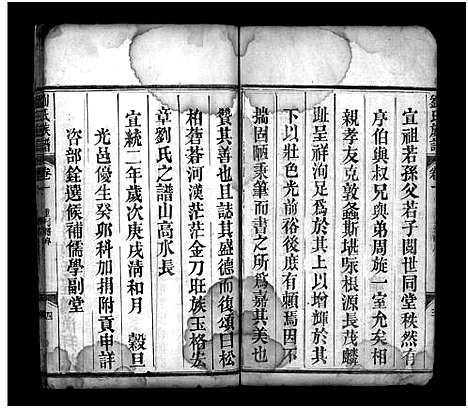 宜祖若孫父若子閱世同堂秩然有
序伯與叔兄與弟周旋一室允矣相
親孝友克敦螽斯堪咏根源長茂麟
趾呈祥洵足為於其上以增輝於其
下以壯色光前裕後庶有賴焉因不
揣固陋秉筆而書之所為嘉其美也
贊其善也且誌其盛德而復頌曰松
柏蒼蒼河漢茫茫金刀旺族玉格宏
章劉氏之譜山高水長
宣統二年歲次庚戌清和月 穀旦
光邑優生癸卯科加捐附貢申詳
咨部銓選候補儒學副堂
劉氏族譜
卷一
四